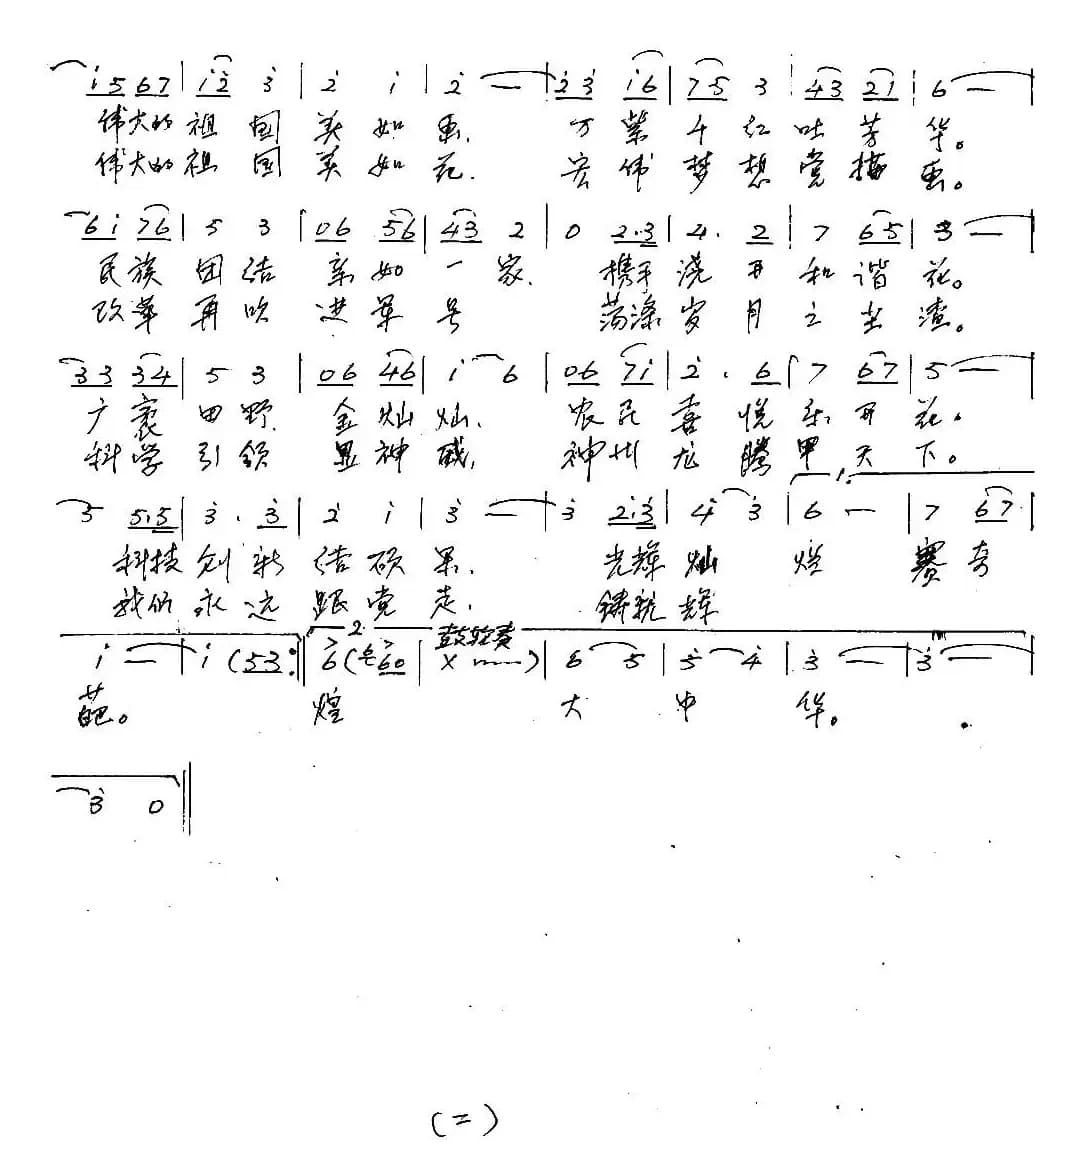 i 5 6 7 | i 2 3 | 2 i | 2 — | 2 3 i 6 | 7 5 3 | 4 3 2 1 | 6 — |
伟大的祖国美如画. 万紫千红吐芳华。
伟大的祖国美如花. 宏伟梦想党描画。
6 i 7 6 | 5 3 | 0 6 5 6 | 4 3 2 | 0 2. 3 | 4. 2 | 7 6 5 | 3 — |
民族团结亲如一家. 携手浇开和谐花。
改革再吹进军号 荡涤岁月之尘渣。
3 3 3 4 | 5 3 | 0 6 4 6 | i 6 | 0 6 7 i | 2. 6 | 7 6 7 | 5 — |
广袤田野金灿灿. 农民喜悦乐开花。
科学引领显神威, 神州龙腾甲天下。
1.
5 5. 5 | 3. 3 | 2 i | 3 — | 3 2. 3 | 4 3 | 6 — | 7 6 7 |
科技创新结硕果. 光辉灿烂赛奇
我们永远跟党走. 铸就辉
2. 鼓轮奏
i — | i (5 3 :| 6 (6 6 0 | X ) | 6 5 | 5 4 | 3 — | 3 — |
葩。 煌 大中华。
3 0 ‖
(二)